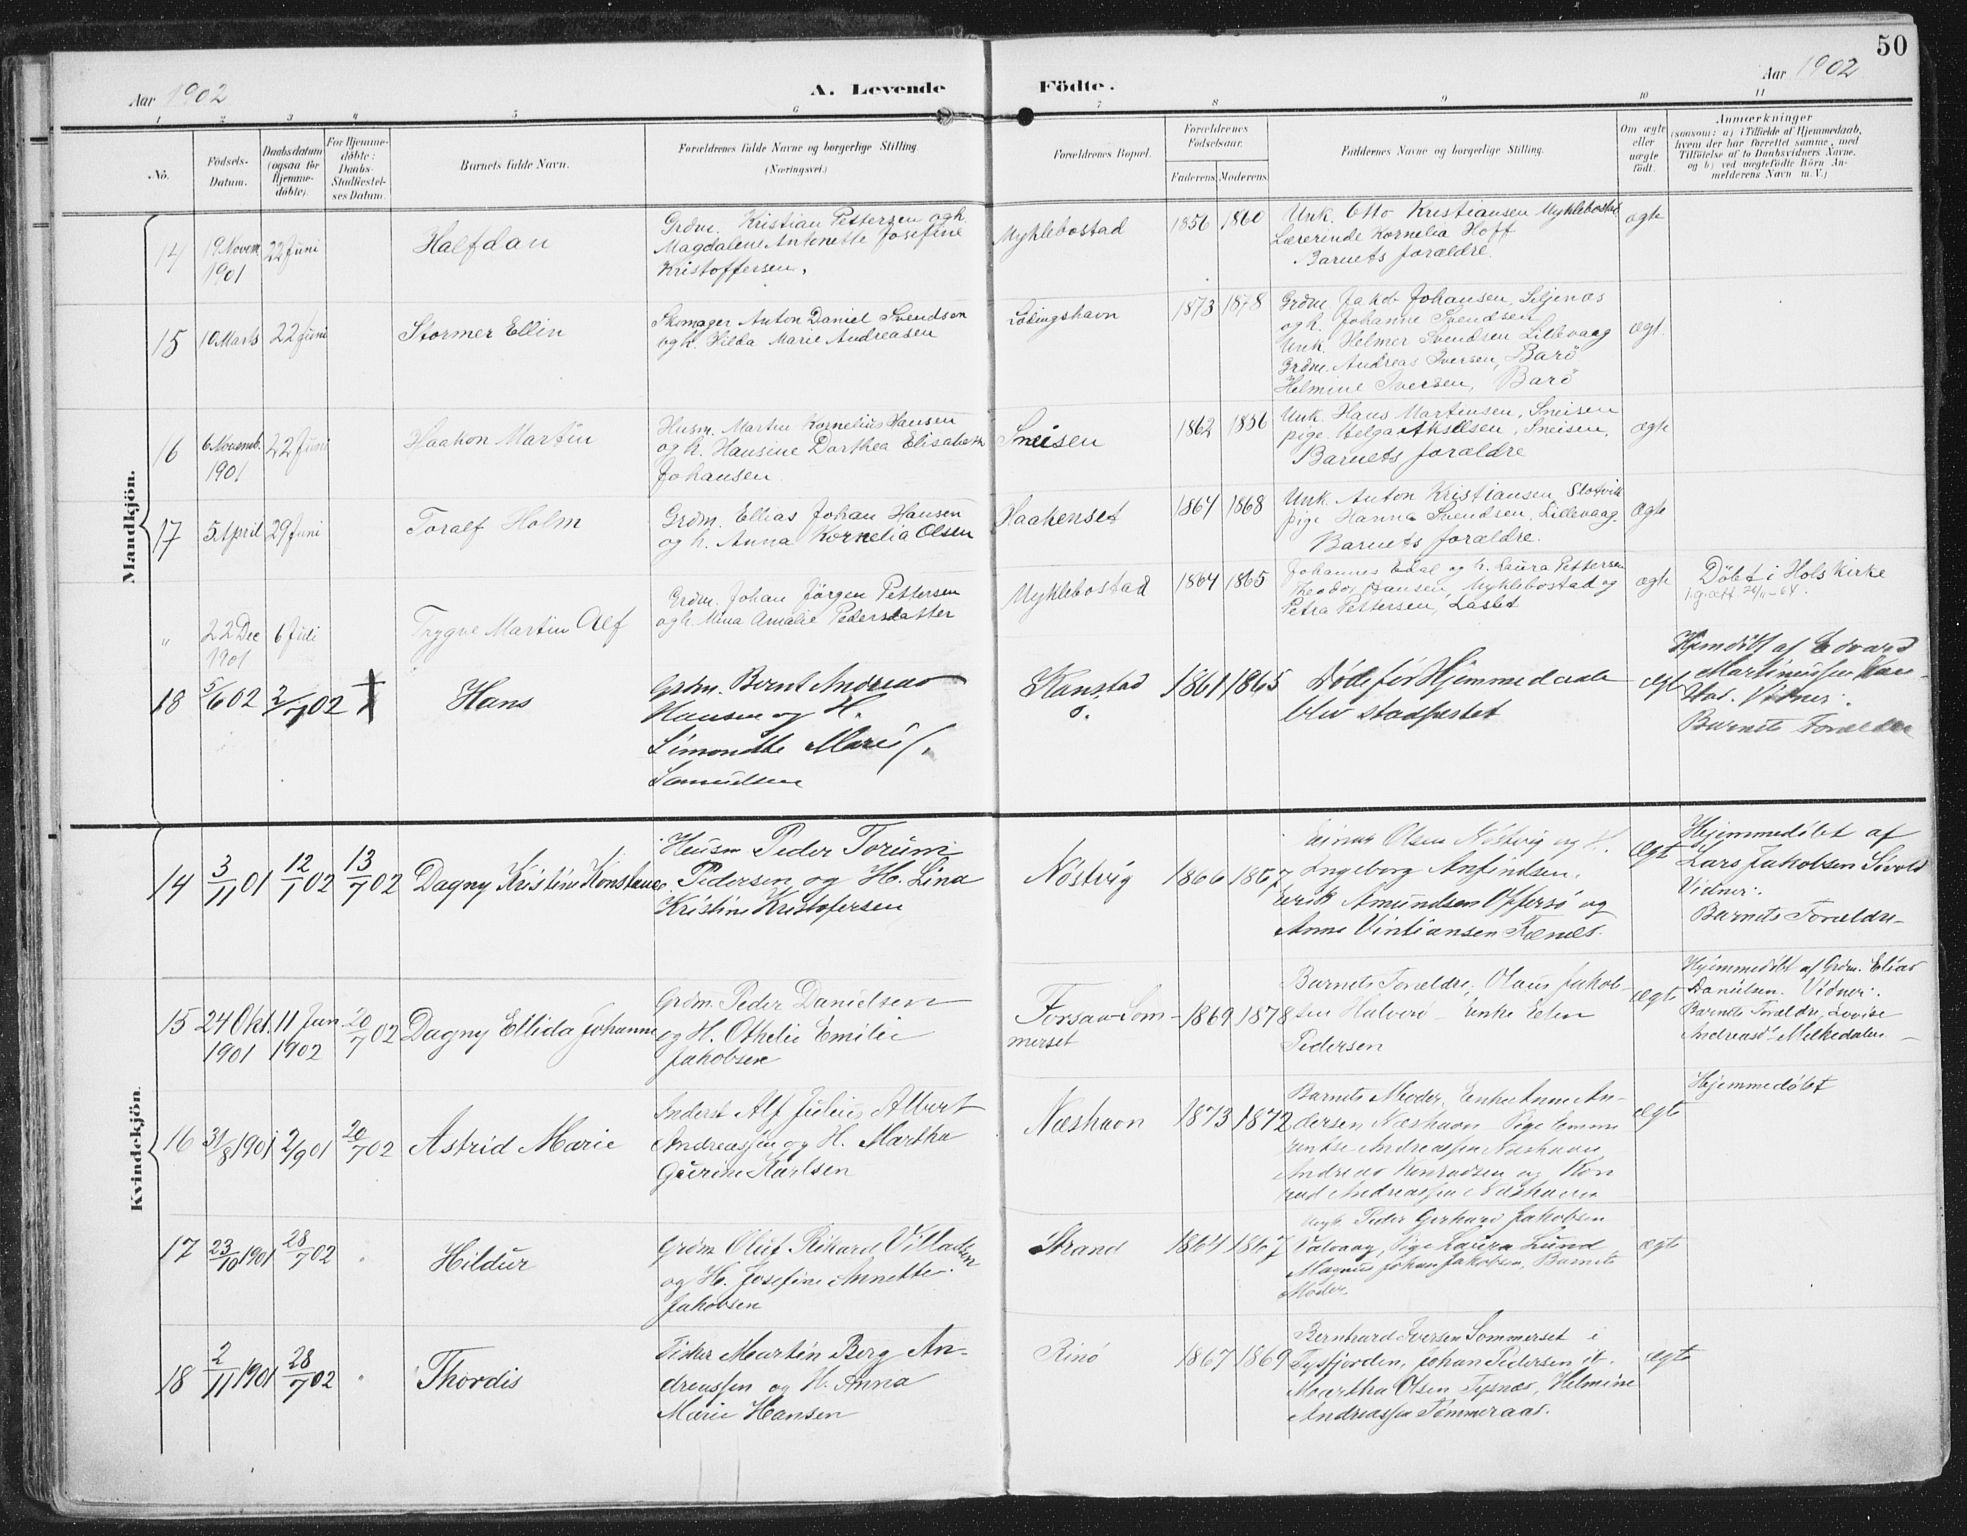 50
Aar 1902
A. Levende
Födte.
Aar 1902
1 2 3 4 5 6 7 8 9 10 11
No.
Födsels-
Datum.
Daabsdatum
(ogsaa for
Hjemme-
döbte)
For Hjemme-
döbte:
Daabs-
Stadfæstel-
ses Datum.
Barnets fulde Navn.
Forældrenes fulde Navne og borgerlige Stilling
(Næringsvei.)
Forældrenes Bopæl.
Forældrenes
Födselsaar.
Faderens. Moderens.
Faddernes Navne og borgerlige Stilling.
Om ægte
eller
uægte
födt.
Anmærkninger
(saasom: a) i Tilfælde af Hjemmedaab,
hvem der har forrettet samme, med
Tilföielse af to Daabsvidners Navne.
og b) ved uægtefödte Börn An-
melderens Navn m. V.)
Mandkjön.
14
19 Novem
1901
22 Juni
Halfdan
Grdm. Kristian Pettersen og h.
Magdalene Antonette Josefine
Kristoffersen.
Myklebostad
1856 1860
Unk. Otto Kristiansen Myklebostad
Lærerinde Kornelia Hoff
Barnets forældre.
ægte
15
10 Marts
22 Juni
Stormer Ellin
Skomager Anton Daniel Svendsen
og h. Hilda Marie Andreasen
Lödingshavn
1873 1878
Grdm Jakob Johansen, Siljenæs
og h. Johanne Svendsen
Unk. Helmer Svendsen Lillevaag
Grdm. Andreas Iversen, Barö
Helmine Iversen, Barö
ægt.
16
6 Novemb.
1901
22 Juni
Haakon Martin
Husm. Martin Kornelius Hansen
og h. Hansine Dorthea Elisabeth
Johansen
Sneisen
1862 1856
Unk. Hans Martinsen, Sneisen
pige. Helga Akselsen, Sneisen.
Barnets forældre
ægte
17
5 April
29 Juni
Toralf Holm
Grdm. Ellias Johan Hansen
og h. Anna Kornelia Olsen
Haakenset
1864 1868
Unk. Anton Kristiansen, Slotvik
pige Hanna Svendsen, Lillevaag.
Barnets forældre.
ægte
"
22 Dec
1901
6 Juli
Trygve Martin Alf
Grdm. Johan Jörgen Pettersen
og h. Mina Amalie Pedersdatter
Myklebostad
1864 1865
Johannes Edal og h. Laura Pettersen
Theodor Hansen, Myklebostad og
Petra Pettersen,
ægte
Döbt i Hols Kirke
18
5/6 02
2/7 02
Hans
Grdm. Bernt Andreas
Hansen og H.
Simondte Marie
Samuelsen
Kanstad
1861 1865
Döde för Hjemmedaab
blev stadfestet
ægt
Hjemdöbt af Edvard
Martinussen Kan-
stad. Vidner:
Barnets Forældre
Kvindekjön.
14
3/11 01
12/1 02
13/7 02
Dagny Kristine Konstance
Husm Peder Torum
Pedersen og H. Lina
Kristine Kristofersen
Nöstvig
1866 1867
Einar Olsen Nöstvig og H.
Ingeborg Anfindsen.
Erik Amundsen Offersö og
Anne Vintiansen Kænes.
ægt
Hjemmedöbt af
Lars Jakobsen Sivold
Vidner:
Barnets Forældre
15
24 Okt.
1901
11 Jan
1902
20/7 02
Dagny Ellida Johanne
Grdm. Peder Danielsen
og H. Othelie Emilie
Jakobsen
Forsaa Som-
merset
1869 1878
Barnets Forældre, Olaus Jakob-
sen Halverö Enke Elen
Pedersen
ægte
Hjemmedöbt af Grdm. Elias
Danielsen. Vidner:
Barnets Forældre, Lovise
Andreasd. Melkedalen
16
31/8 1901
2/9 01
20/7 02
Astrid Marie
Inderst Alf Julius Albert
Andreassen og H. Martha
Gurine Karlsen
Næshavn
1873 1872
Barnets Moder, Enke Anne An-
dersen Næshavn Pige Emma
Andreassen Næshavn
Andreas Konradsen og Kon
rad Andreassen Næshavn
ægte
Hjemmedöbt
17
23/10 1901
28/7 02
Hildur
Grdm Oluf Rikard Villadsen
og H. Josefine Annette
Jakobsen
Strand
1864 1867
Ungk. Peder Gerhard Jakobsen
Valvaag, Pige Laura Lund
Magnus Johan Jakobsen, Barnets
Moder.
ægte
18
2/11 1901
28/7 02
Thordis
Fisker Martin Berg An-
dreassen og H. Anna
Marie Hansen
Rinö
1867 1869
Bernhard Iversen Sommerset i
Tysfjorden, Johan Pedersen it.
Martha Olsen Tysnæs, Helmine
Andreassen Tömmeraas.
ægte